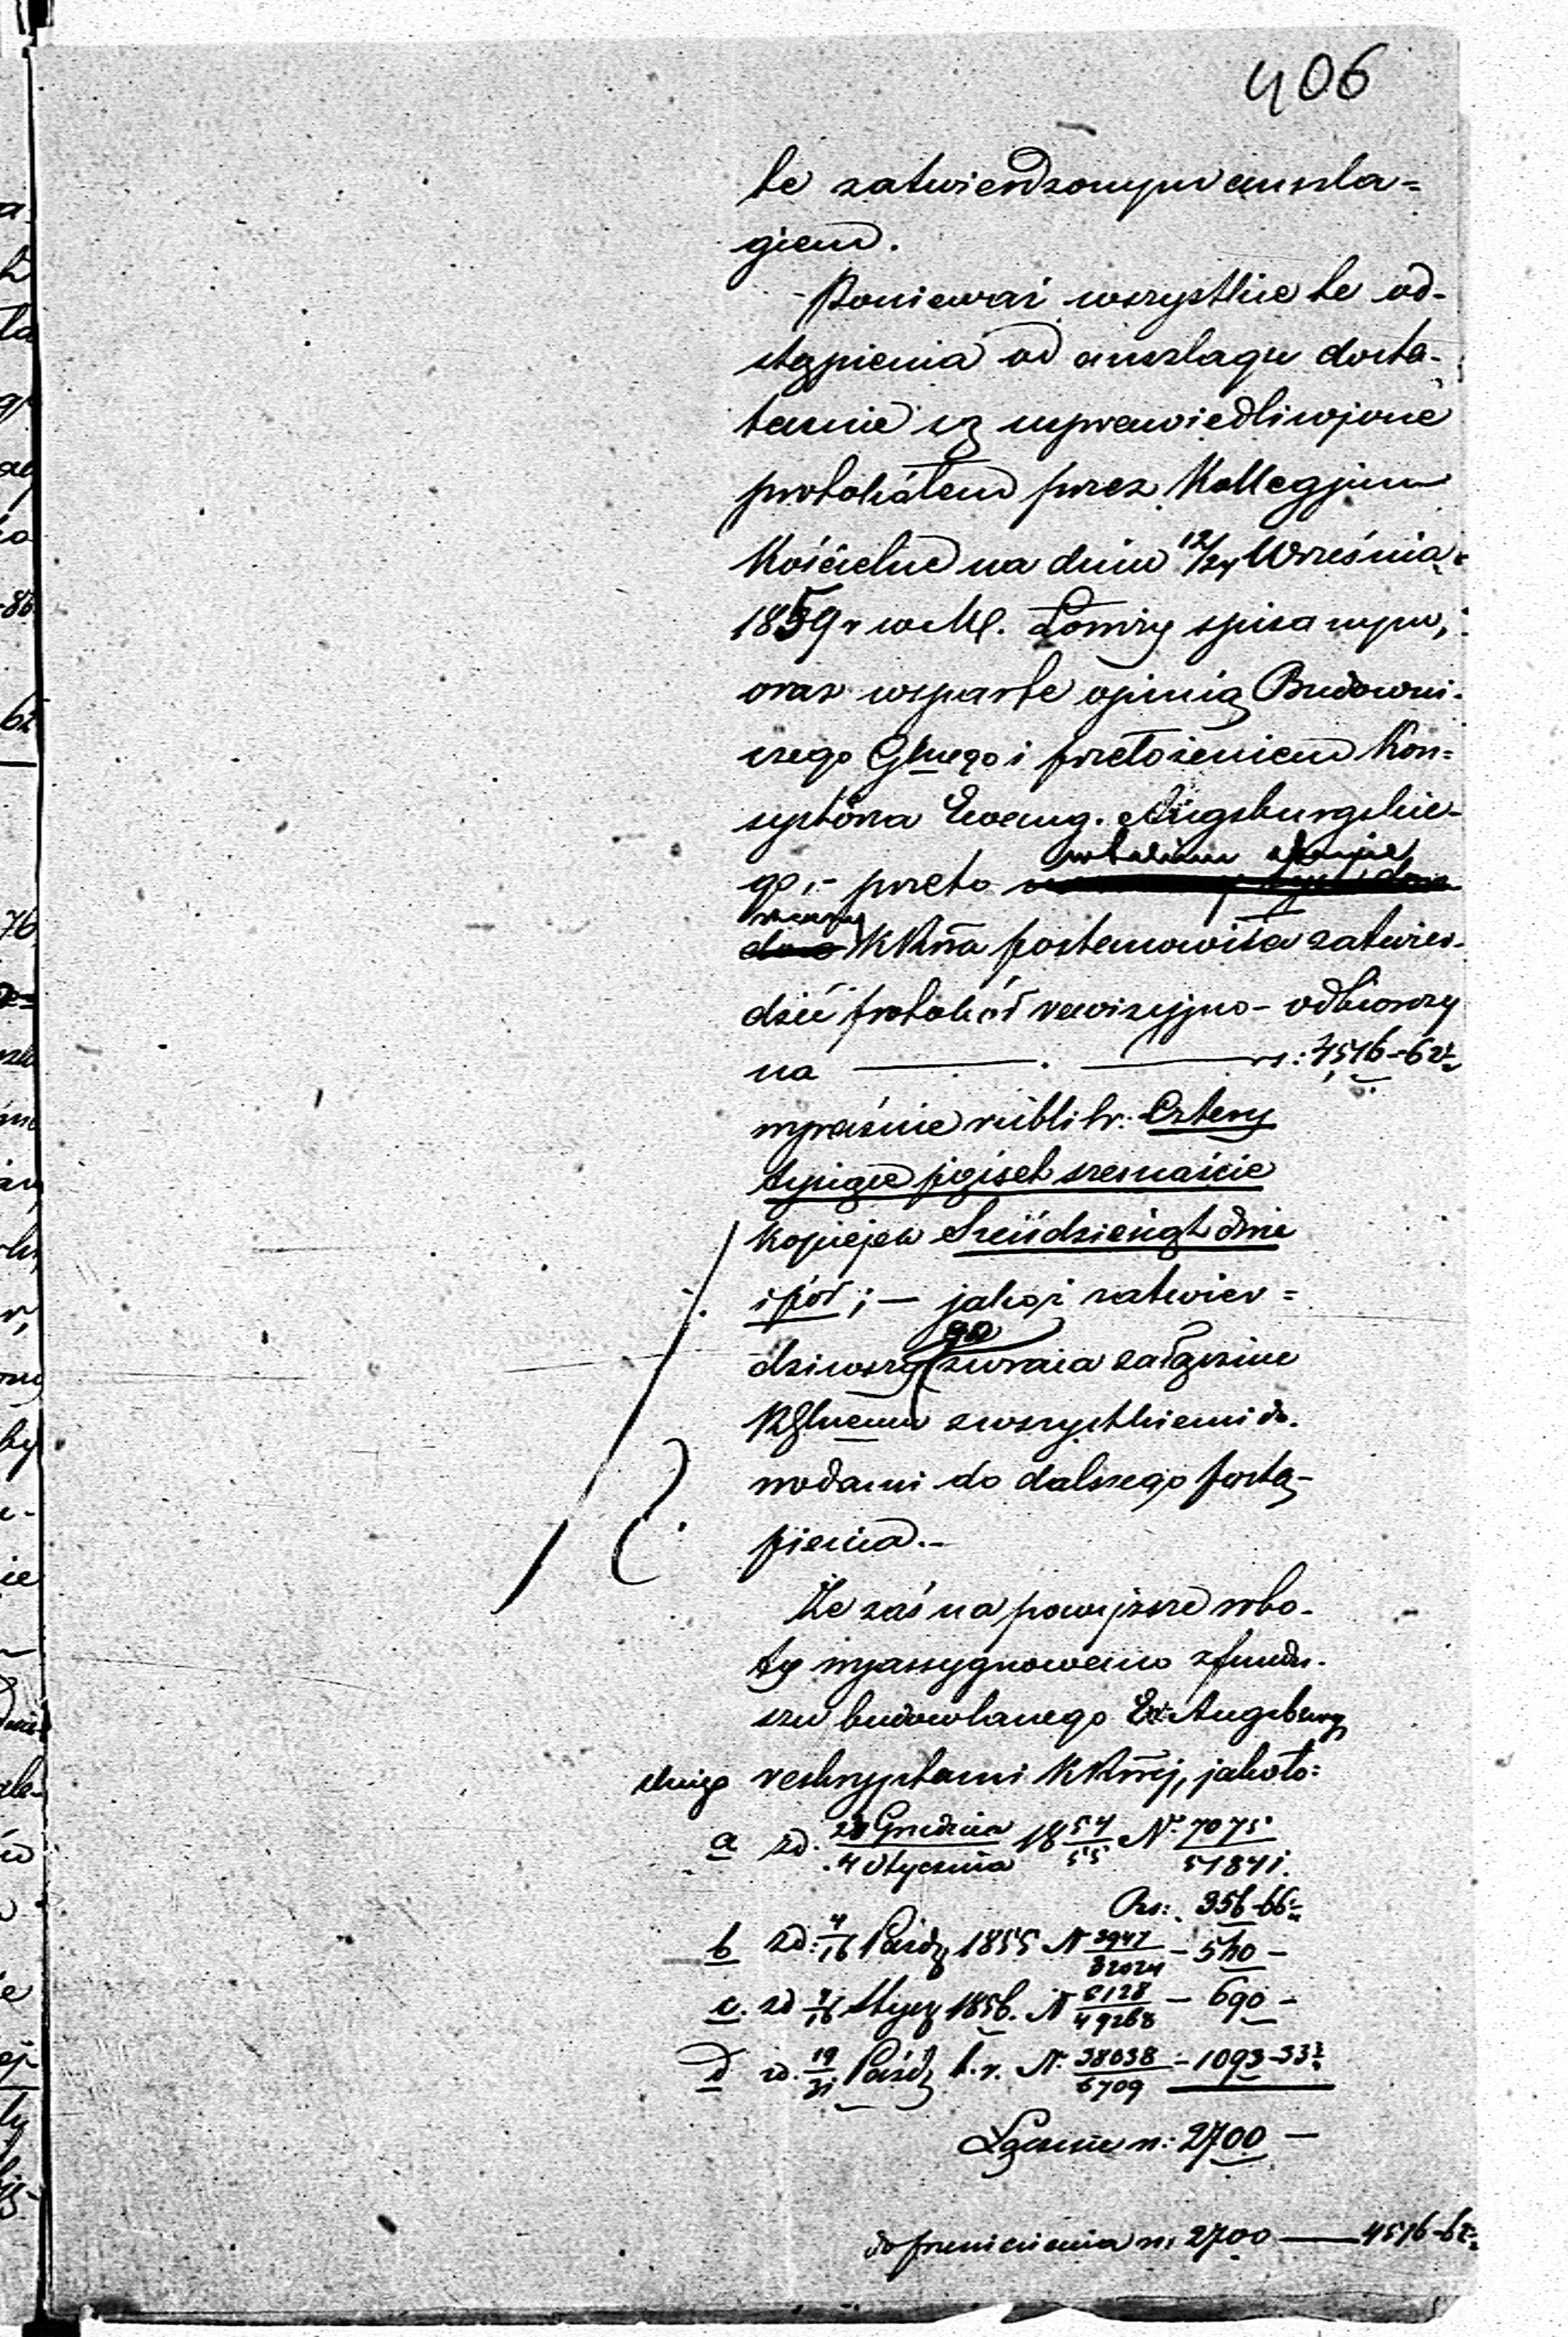 406
te zatwierdzonym anszla=
giem.
Ponieważ wszystkie te od-
stąpienia od anszlagu dosta-
tecznie są usprawiedliwjone
protokółem przez Kollegjum
Kościelne na dniu 12/24 Września
1859 r w M. Łomży spisanym,
oraz wsparte opinią Budowni-
czego Głnego i przełożeniem Kon=
systörza Ewang. Augsburgskie-
go,- przeto
KRna postanowiła zatwier-
dzić protokół rewizyjno-odbiorczy
na — . — rs: 4516-62½
wyraźnie rubli sr. Cztery
tysiące pięćset szesnaście
kopiejek Sześćdziesiąt dwie
i pół ; — jakoż zatwier=
go
dziwszy zwraca załącznie
RGłnemu z wszystkiemi do-
wodami do dalszego postą-
pienia.-
Że zaś na powyższe robo-
ty wyassygnowano z fundu-
szu budowlanego Ew. Augsburg
skiego reskryptami KRnej, jakoto:
a zd. 23 Grudnia/4 Stycznia 18 54/55 No 7075/51841.
Rs: 356-66½
b zd: 4/16 Paźdz 1855 N 3947/32024 - 540 -
c. zd 4/16 Stycz 1856. N 6128/49268 - 690 -
d zd. 19/31 Paźdz t.r. N. 38038/6709 - 1093-33½
Łącznie rs: 2700 —
do przeniesienia rs 2700 — 4516-62½